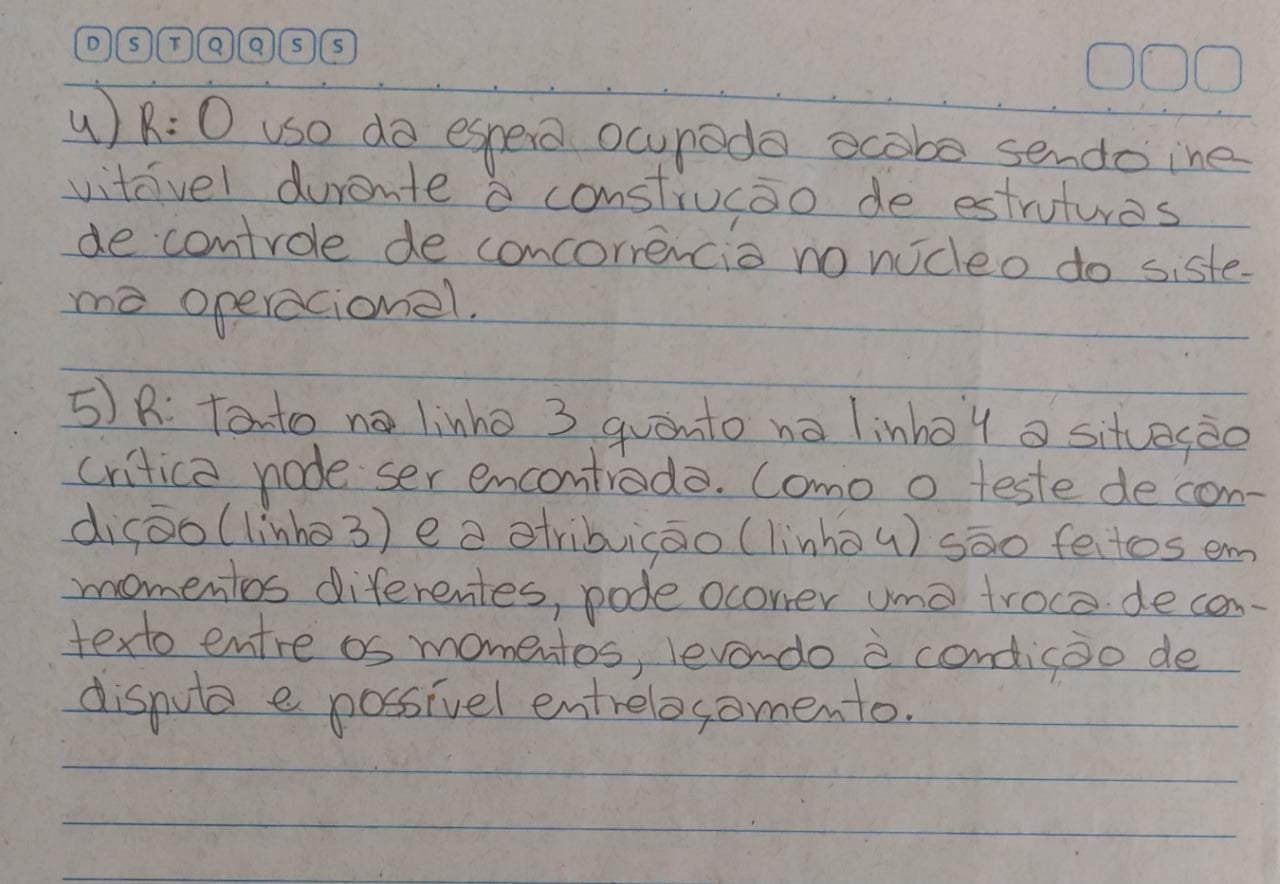 D S T Q Q S S
4) R: O uso da espera ocupada acaba sendo ine-
vitável durante a construção de estruturas
de controle de concorrência no núcleo do siste-
ma operacional.
5) R: Tanto na linha 3 quanto na linha 4 a situação
crítica pode ser encontrada. Como o teste de con-
dição (linha 3) e a atribuição (linha 4) são feitos em
momentos diferentes, pode ocorrer uma troca de con-
texto entre os momentos, levando à condição de
disputa e possível entrelaçamento.